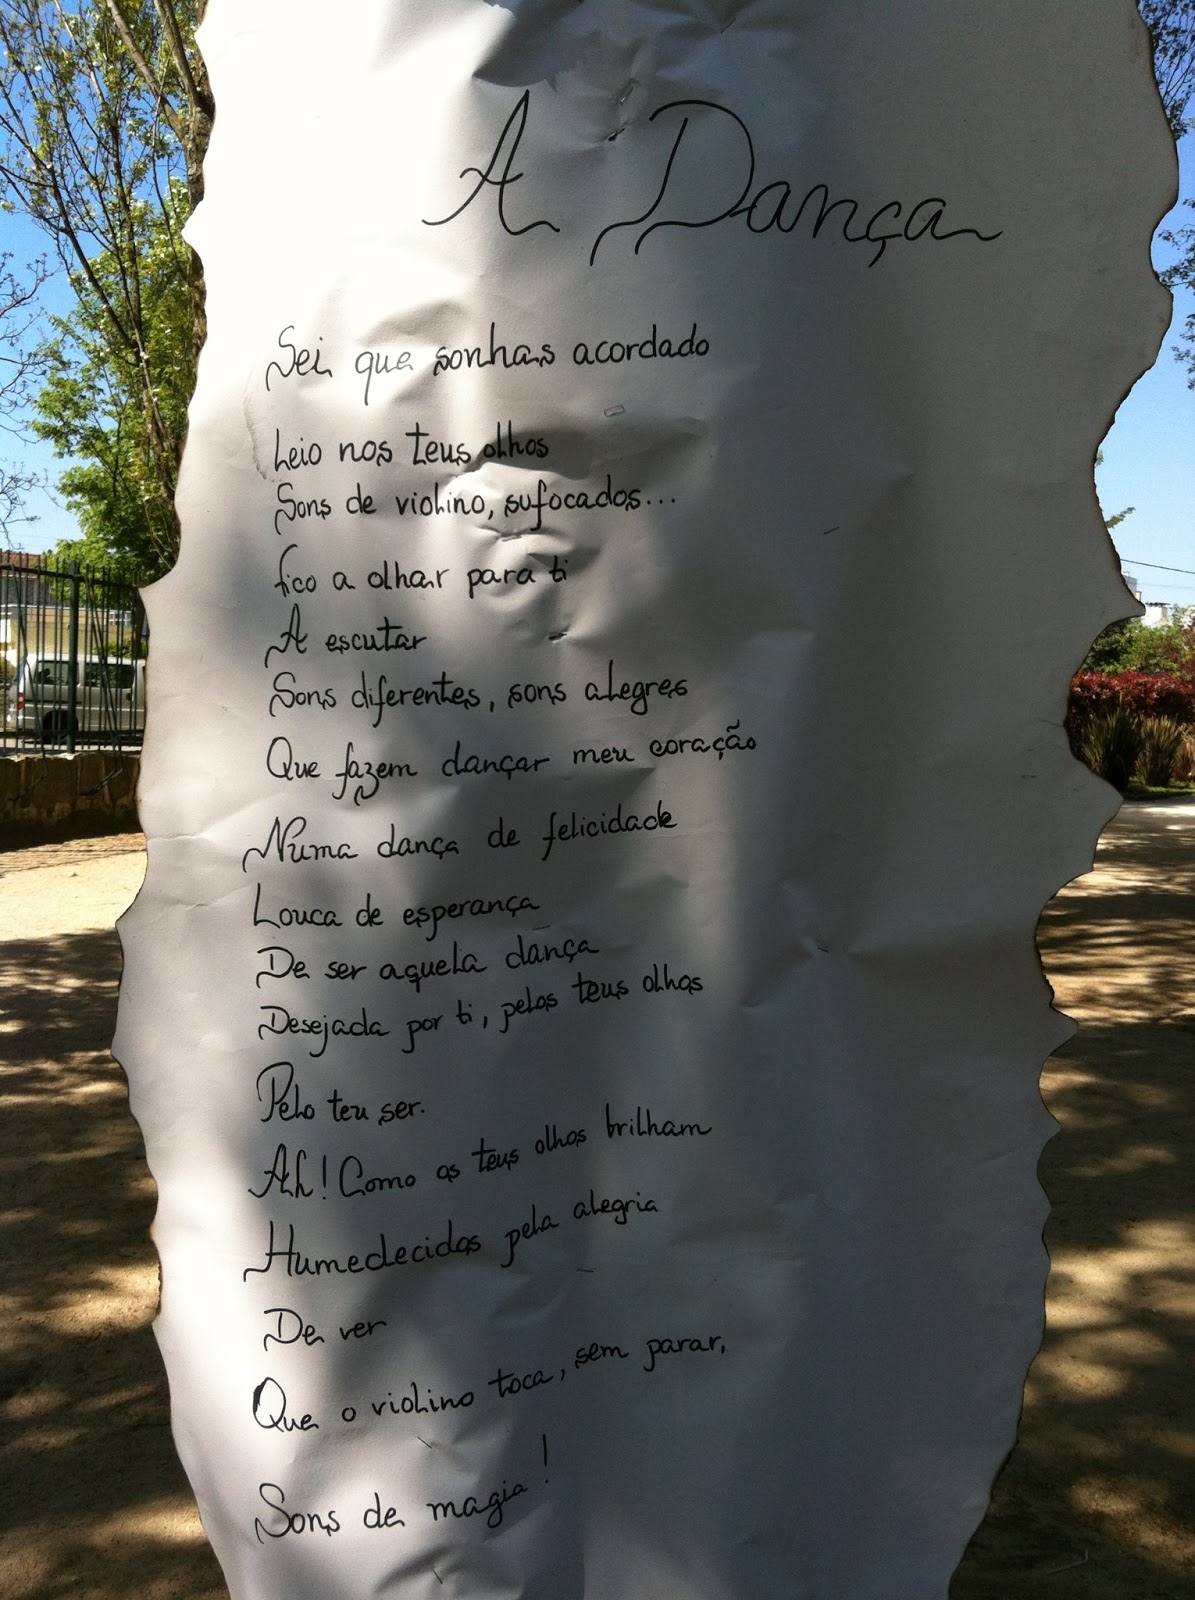 A Dança
Sei que sonhas acordado
Leio nos teus olhos
Sons de violino, sufocados...
fico a olhar para ti
A escutar
Sons diferentes, sons alegres
Que fazem dançar meu coração
Numa dança de felicidade
Louca de esperança
De ser aquela dança
Desejada por ti, pelos teus olhos
Pelo teu ser.
Ah! Como os teus olhos brilham
Humedecidos pela alegria
De ver
Que o violino toca, sem parar,
Sons de magia!